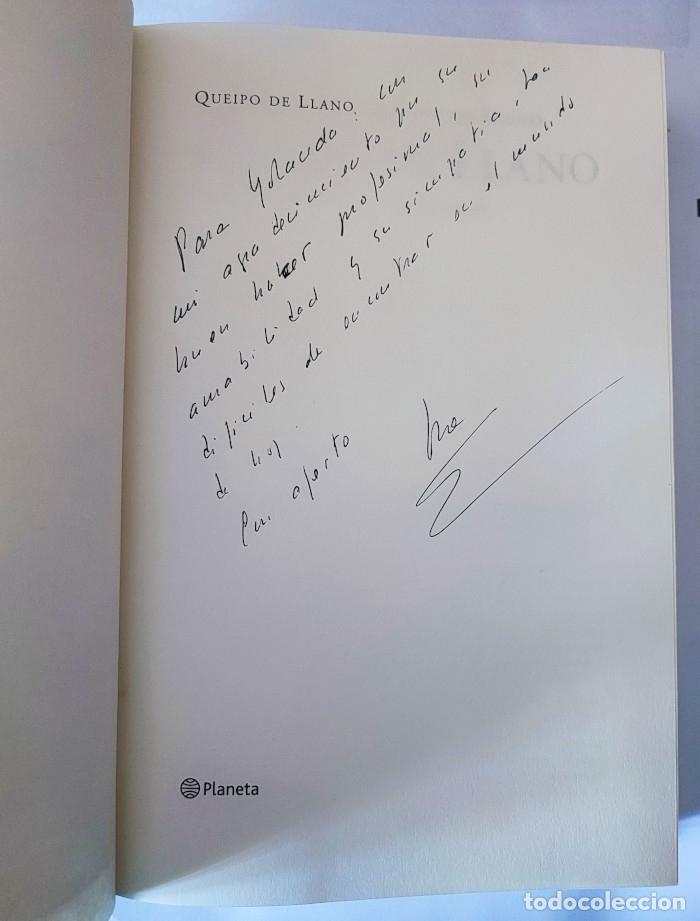 QUEIPO DE LLANO
Para Yolanda: con
mi agradecimiento por su
buen hacer profesional, su
amabilidad y su simpatía, tan
difíciles de encontrar en el mundo
de hoy.
Con afecto
LLANO
Planeta
todocoleccion